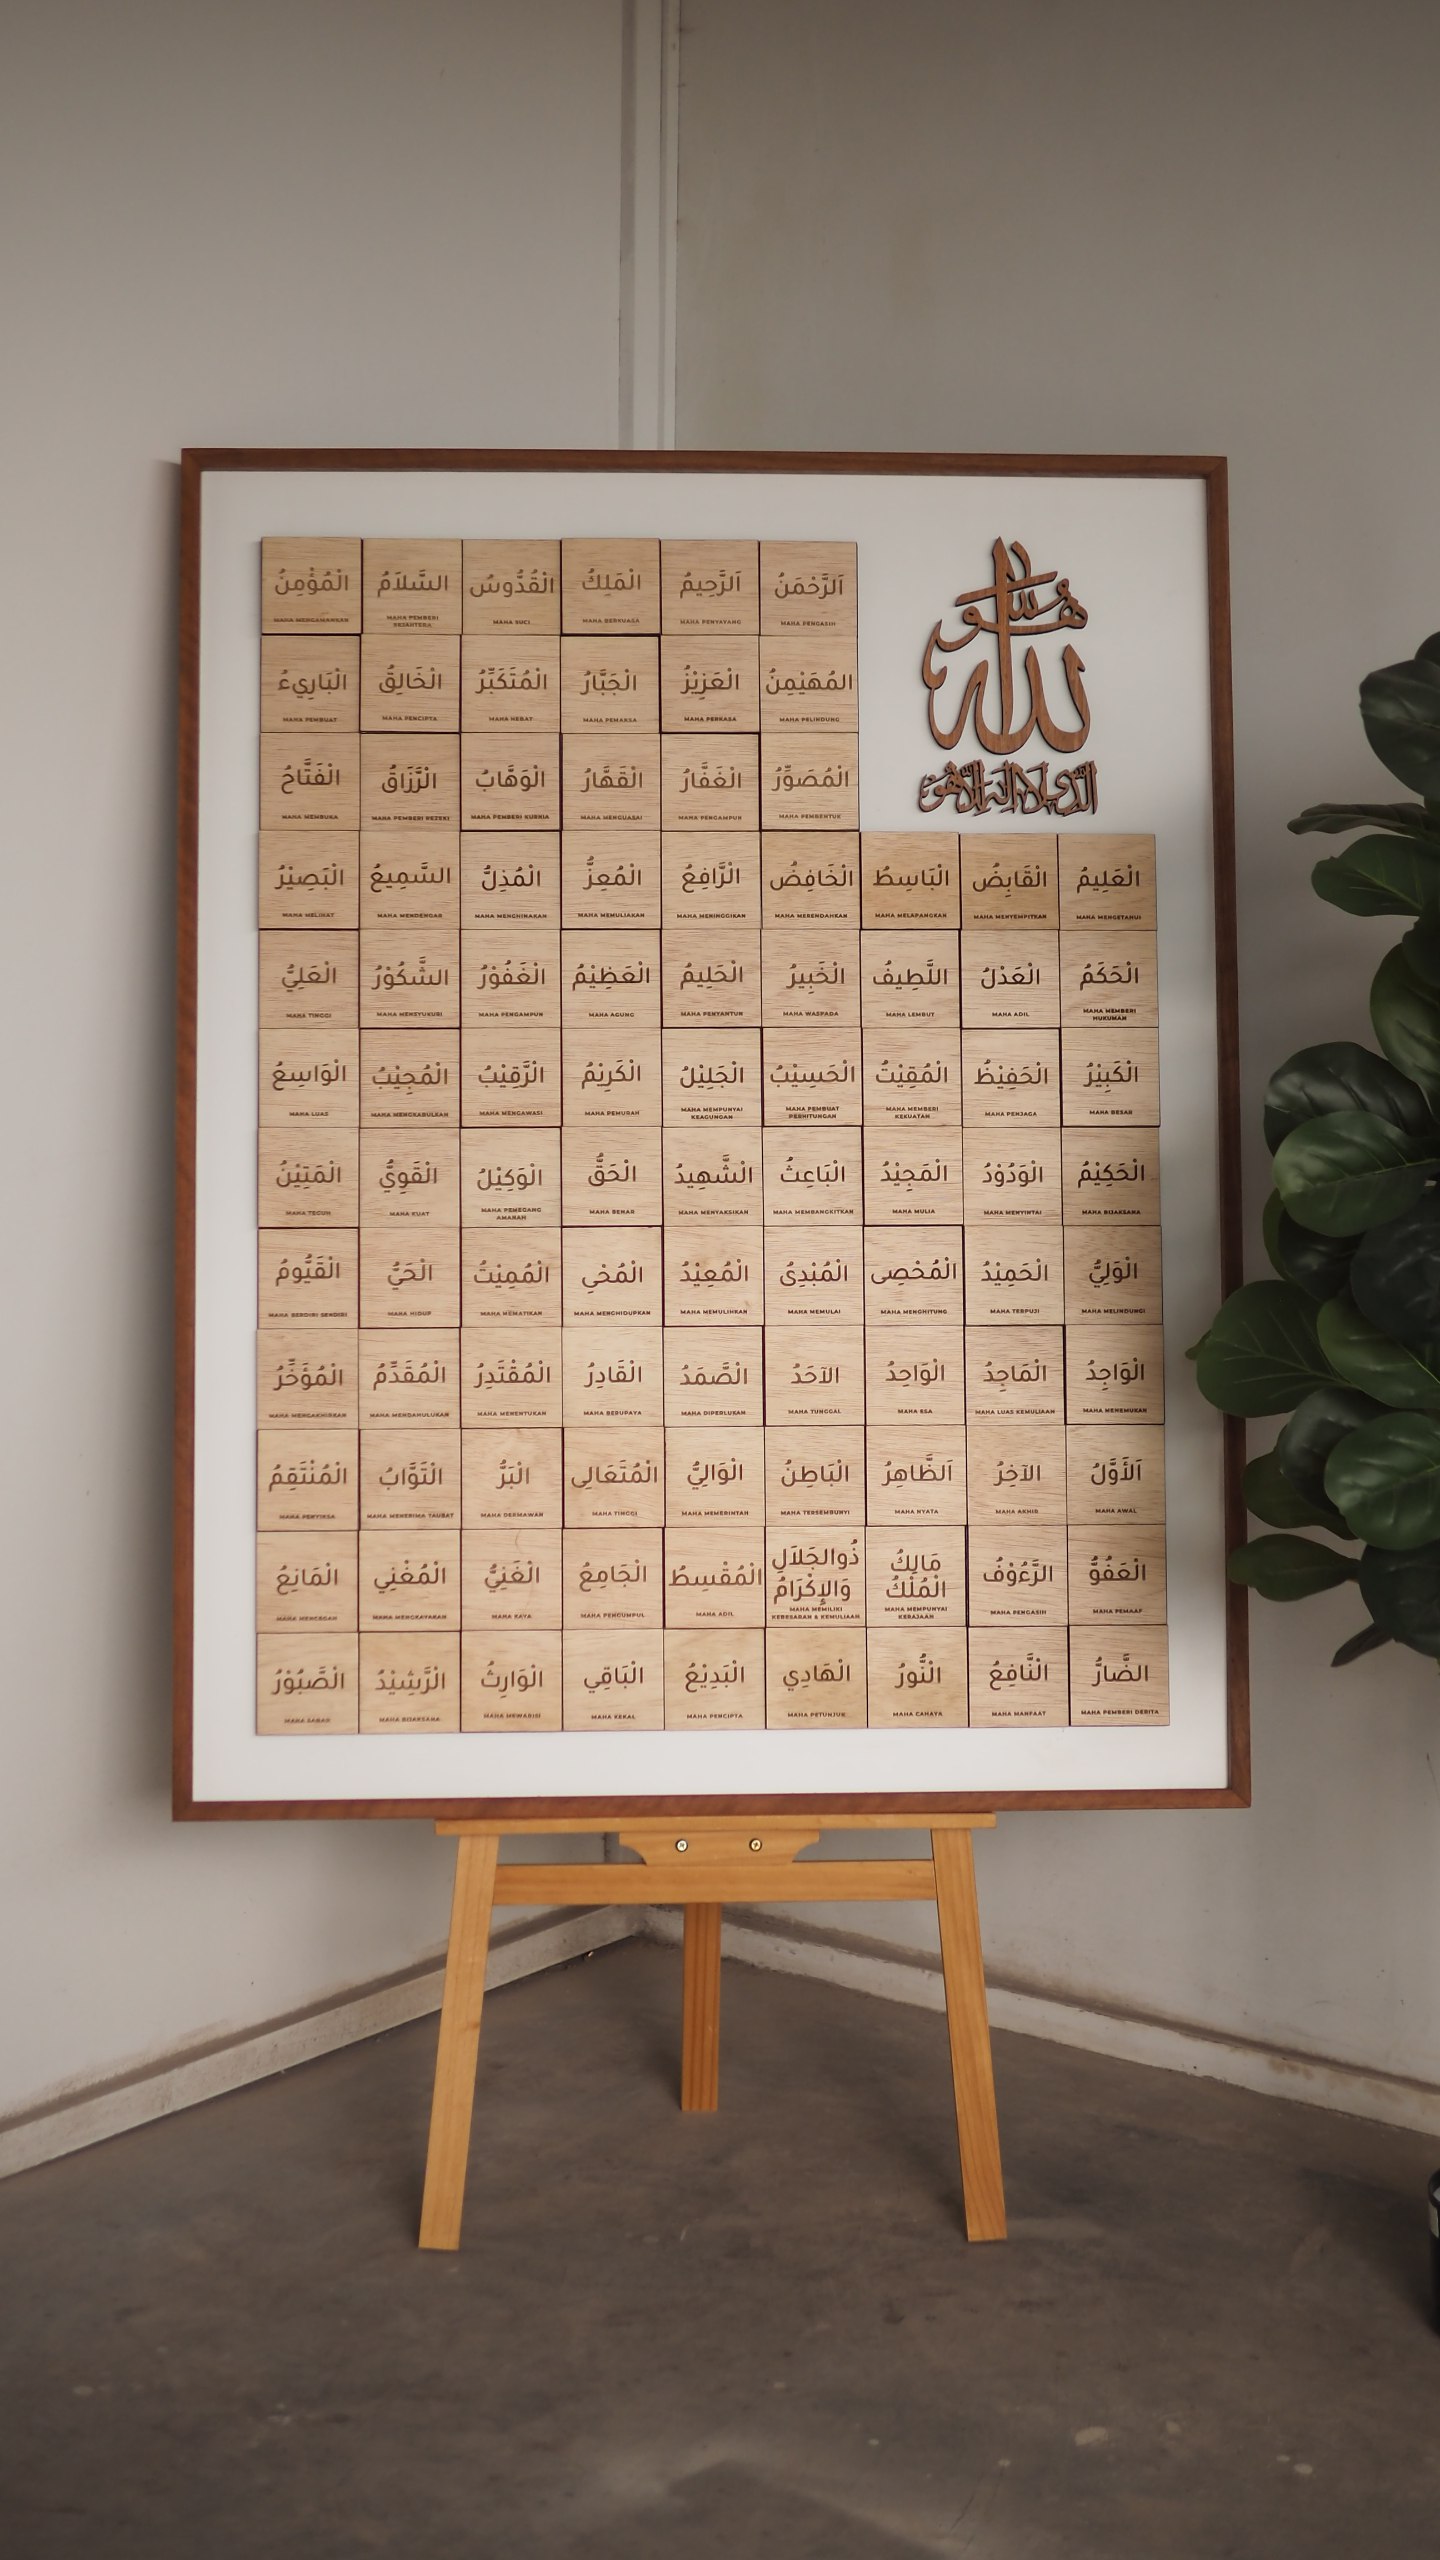 هُوَ الله
الَّذِي لَا إِلَهَ إِلَّا هُوَ
اَلرَّحْمَنُ
MAHA PENGASIH
اَلرَّحِيمُ
MAHA PENYAYANG
الْمَلِكُ
MAHA BERKUASA
الْقُدُّوسُ
MAHA SUCI
السَّلاَمُ
MAHA PEMBERI
SEJAHTERA
الْمُؤْمِنُ
MAHA MENGAMANKAN
المُهَيْمِنُ
MAHA PELINDUNG
الْعَزِيْزُ
MAHA PERKASA
الْجَبَّارُ
MAHA PEMAKSA
الْمُتَكَبِّرُ
MAHA HEBAT
الْخَالِقُ
MAHA PENCIPTA
الْبَارِيءُ
MAHA PEMBUAT
الْمُصَوِّرُ
MAHA PEMBENTUK
الْغَفَّارُ
MAHA PENGAMPUN
الْقَهَّارُ
MAHA MENGUASAI
الْوَهَّابُ
MAHA PEMBERI KURNIA
الْرَّزَاقُ
MAHA PEMBERI REZEKI
الْفَتَّاحُ
MAHA MEMBUKA
الْعَلِيمُ
MAHA MENGETAHUI
الْقَابِضُ
MAHA MENYEMPITKAN
الْبَاسِطُ
MAHA MELAPANGKAN
الْخَافِضُ
MAHA MERENDAHKAN
الْرَّافِعُ
MAHA MENINGGIKAN
الْمُعِزُّ
MAHA MEMULIAKAN
الْمُذِلُّ
MAHA MENGHINAKAN
السَّمِيعُ
MAHA MENDENGAR
الْبَصِيْرُ
MAHA MELIHAT
الْحَكَمُ
MAHA MEMBERI
HUKUMAN
الْعَدْلُ
MAHA ADIL
اللَّطِيفُ
MAHA LEMBUT
الْخَبِيرُ
MAHA WASPADA
الْحَلِيمُ
MAHA PENYANTUN
الْعَظِيْمُ
MAHA AGUNG
الْغَفُوْرُ
MAHA PENGAMPUN
الشَّكُوْرُ
MAHA MENSYUKURI
الْعَلِيُّ
MAHA TINGGI
الْكَبِيْرُ
MAHA BESAR
الْحَفِيْظُ
MAHA PENJAGA
الْمُقِيْتُ
MAHA MEMBERI
KEKUATAN
الْحَسِيْبُ
MAHA PEMBUAT
PERHITUNGAN
الْجَلِيْلُ
MAHA MEMPUNYAI
KEAGUNGAN
الْكَرِيْمُ
MAHA PEMURAH
الْرَّقِيْبُ
MAHA MENGAWASI
الْمُجِيْبُ
MAHA MENGKABULKAN
الْوَاسِعُ
MAHA LUAS
الْحَكِيْمُ
MAHA BIJAKSANA
الْوَدُوْدُ
MAHA MENYINTAI
الْمَجِيْدُ
MAHA MULIA
الْبَاعِثُ
MAHA MEMBANGKITKAN
الْشَّهِيدُ
MAHA MENYAKSIKAN
الْحَقُّ
MAHA BENAR
الْوَكِيْلُ
MAHA PEMEGANG
AMANAH
الْقَوِيُّ
MAHA KUAT
الْمَتِيْنُ
MAHA TEGUH
الْوَلِيُّ
MAHA MELINDUNGI
الْحَمِيْدُ
MAHA TERPUJI
الْمُحْصِى
MAHA MENGHITUNG
الْمُبْدِئُ
MAHA MEMULAI
الْمُعِيْدُ
MAHA MEMULIHKAN
الْمُحْيِ
MAHA MENGHIDUPKAN
الْمُمِيْتُ
MAHA MEMATIKAN
الْحَيُّ
MAHA HIDUP
الْقَيُّومُ
MAHA BERDIRI SENDIRI
الْوَاجِدُ
MAHA MENEMUKAN
الْمَاجِدُ
MAHA LUAS KEMULIAAN
الْوَاحِدُ
MAHA ESA
الآحَدُ
MAHA TUNGGAL
الْصَّمَدُ
MAHA DIPERLUKAN
الْقَادِرُ
MAHA BERUPAYA
الْمُقْتَدِرُ
MAHA MENENTUKAN
الْمُقَدِّمُ
MAHA MENDAHULUKAN
الْمُؤَخِّرُ
MAHA MENGAKHIRKAN
اَلأَوَّلُ
MAHA AWAL
الآخِرُ
MAHA AKHIR
اَلظَّاهِرُ
MAHA NYATA
الْبَاطِنُ
MAHA TERSEMBUNYI
الْوَالِيُّ
MAHA MEMERINTAH
الْمُتَعَالِى
MAHA TINGGI
الْبَرُّ
MAHA DERMAWAN
الْتَوَّابُ
MAHA MENERIMA TAUBAT
الْمُنْتَقِمُ
MAHA PENYIKSA
الْعَفُوُّ
MAHA PEMAAF
الرَّءُوْفُ
MAHA PENGASIH
مَالِكُ
الْمُلْكُ
MAHA MEMPUNYAI
KERAJAAN
ذُوالجَلاَلِ
وَالإِكْرَامُ
MAHA MEMILIKI
KEBESARAN & KEMULIAAN
الْمُقْسِطُ
MAHA ADIL
الْجَامِعُ
MAHA PENGUMPUL
الْغَنِيُّ
MAHA KAYA
الْمُغْنِي
MAHA MENGKAYAKAN
الْمَانِعُ
MAHA MENCEGAH
الْضَّارُّ
MAHA PEMBERI DERITA
الْنَّافِعُ
MAHA MANFAAT
الْنُّورُ
MAHA CAHAYA
الْهَادِي
MAHA PETUNJUK
الْبَدِيْعُ
MAHA PENCIPTA
الْبَاقِي
MAHA KEKAL
الْوَارِثُ
MAHA MEWARISI
الْرَّشِيْدُ
MAHA BIJAKSANA
الْصَّبُوْرُ
MAHA SABAR